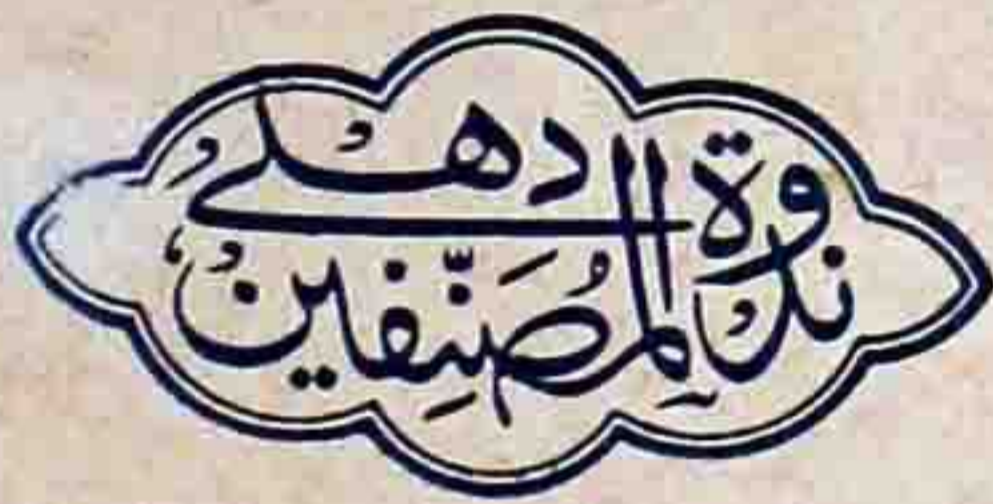 ندوة المصنّفین دھلی